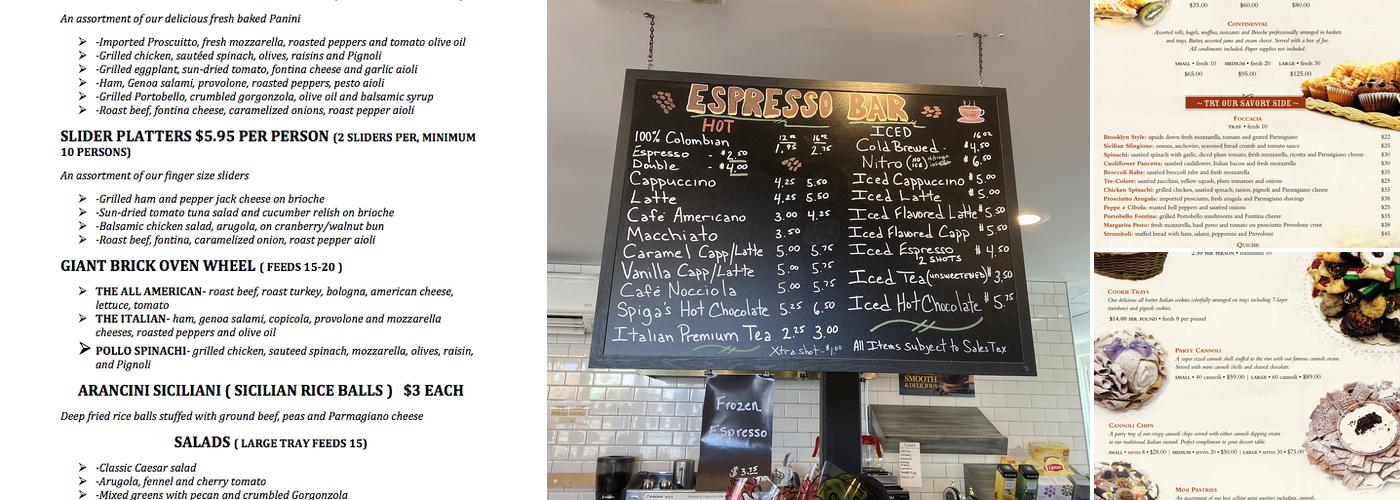 An assortment of our delicious fresh baked Panini
-Imported Proscuitto, fresh mozzarella, roasted peppers and tomato olive oil
-Grilled chicken, sautéed spinach, olives, raisins and Pignoli
-Grilled eggplant, sun-dried tomato, fontina cheese and garlic aioli
-Ham, Genoa salami, provolone, roasted peppers, pesto aioli
-Grilled Portobello, crumbled gorgonzola, olive oil and balsamic syrup
-Roast beef, fontina cheese, caramelized onions, roast peper aioli
SLIDER PLATTERS $5.95 PER PERSON (2 SLIDERS PER, MINIMUM
10 PERSONS)
An assortment of our finger size sliders
-Grilled ham and pepper jack cheese on brioche
-Sun-dried tomato tuna salad and cucumber relish on brioche
-Balsamic chicken salad, arugula, on cranberry/walnut bun
-Roast beef, fontina, caramelized onion, roast peper aioli
GIANT BRICK OVEN WHEEL ( FEEDS 15-20 )
THE ALL AMERICAN- roast beef, roast turkey, bologna, american cheese,
lettuce, tomato
THE ITALIAN- ham, genoa salami, copicola, provolone and mozzarella
cheeses, roasted peppers and olive oil
POLLO SPINACHI- grilled chicken, sauteed spinach, mozzarella, olives, raisin,
and Pignoli
ARANCINI SICILIANI ( SICILIAN RICE BALLS ) $3 EACH
Deep fried rice balls stuffed with ground beef, peas and Parmagiano cheese
SALADS ( LARGE TRAY FEEDS 15)
-Classic Caesar salad
-Arugula, fennel and cherry tomato
-Mixed greens with pecan and crumbled Gorgonzola
ESPRESSO BAR
HOT
100% Colombian 12 oz 16 oz
1.95 2.75
Espresso - $2.50
Double - $4.00
Cappuccino 4.25 5.50
Latte 4.25 5.50
Café Americano 3.00 4.25
Macchiato 3.50
Caramel Capp/Latte 5.00 5.75
Vanilla Capp/Latte 5.00 5.75
Café Nocciola 5.00 5.75
Spiga's Hot Chocolate 5.25 6.50
Italian Premium Tea 2.25 3.00
Xtra shot-$1.00
ICED
16 oz
Cold Brewed - $4.50
Nitro (NO ICE) $6.50
Iced Cappuccino $5.00
Iced Latte $5.00
Iced Flavored Latte $5.50
Iced Flavored Capp $5.50
Iced Espresso $4.50
2 SHOTS
Iced Tea (unsweetened) $3.50
Iced Hot Chocolate $5.75
All Items Subject to Sales Tax
Frozen
Espresso
$3.75
SMOOTH
& DELICIOUS
Lipton
$35.00 $60.00 $80.00
CONTINENTAL
Assorted rolls, bagels, muffins, croissants and Brioche professionally arranged in baskets
and trays. Butter, assorted jams and cream cheese. Served with a box of Joe.
All condiments included. Paper supplies not included.
SMALL • feeds 10 MEDIUM • feeds 20 LARGE • feeds 30
$65.00 $95.00 $125.00
~ TRY OUR SAVORY SIDE ~
FOCCACIA
TRAY • feeds 10
Brooklyn Style: upside down fresh mozzarella, tomato and grated Parmigiano $22
Sicilian Sfingione: onions, anchovies, seasoned bread crumb and tomato sauce $25
Spinachi: sautéed spinach with garlic, diced plum tomato, fresh mozzarella, ricotta and Parmigiano cheese $30
Cauliflower Pancetta: sautéed cauliflower, Italian bacon and fresh mozzarella $30
Broccoli Rabe: sautéed broccoli rabe and fresh mozzarella $35
Tre-Colore: sautéed zucchini, yellow squash, plum tomatoes and onions $25
Chicken Spinachi: grilled chicken, sautéed spinach, raisins, pignoli and Parmigiano cheese $35
Prosciutto Arugula: imported prosciutto, fresh arugula and Parmigiano shavings $38
Peppe e Cibola: roasted bell peppers and sautéed onions $25
Portobello Fontina: grilled Portobello mushrooms and Fontina cheese $35
Margarita Pesto: fresh mozzarella, basil pesto and tomato on prosciutto Provolone $38
Stromboli: stuffed bread with ham, salami, pepperoni and Provolone $45
QUICHE
2.50 PER PERSON • minimum 10
COOKIE TRAYS
Our delicious all butter Italian cookies colorfully arranged on trays including 7-layer
(rainbow) and pignoli cookies.
$14.00 PER POUND • feeds 8 per pound
PARTY CANNOLI
A super sized cannoli shell stuffed to the rim with our famous cannoli cream.
Served with mini cannoli shells and shaved chocolate.
SMALL • 40 cannoli • $59.00 | LARGE • 60 cannoli • $89.00
CANNOLI CHIPS
A party tray of our crispy cannoli chips served with either cannoli dipping cream
or our traditional Italian custard. Perfect compliment to your dessert table.
SMALL • serves 8 • $28.00 | MEDIUM • serves 20 • $50.00 | LARGE • serves 30 • $75.00
MINI PASTRIES
An assortment of our best selling mini pastries including, cannoli,